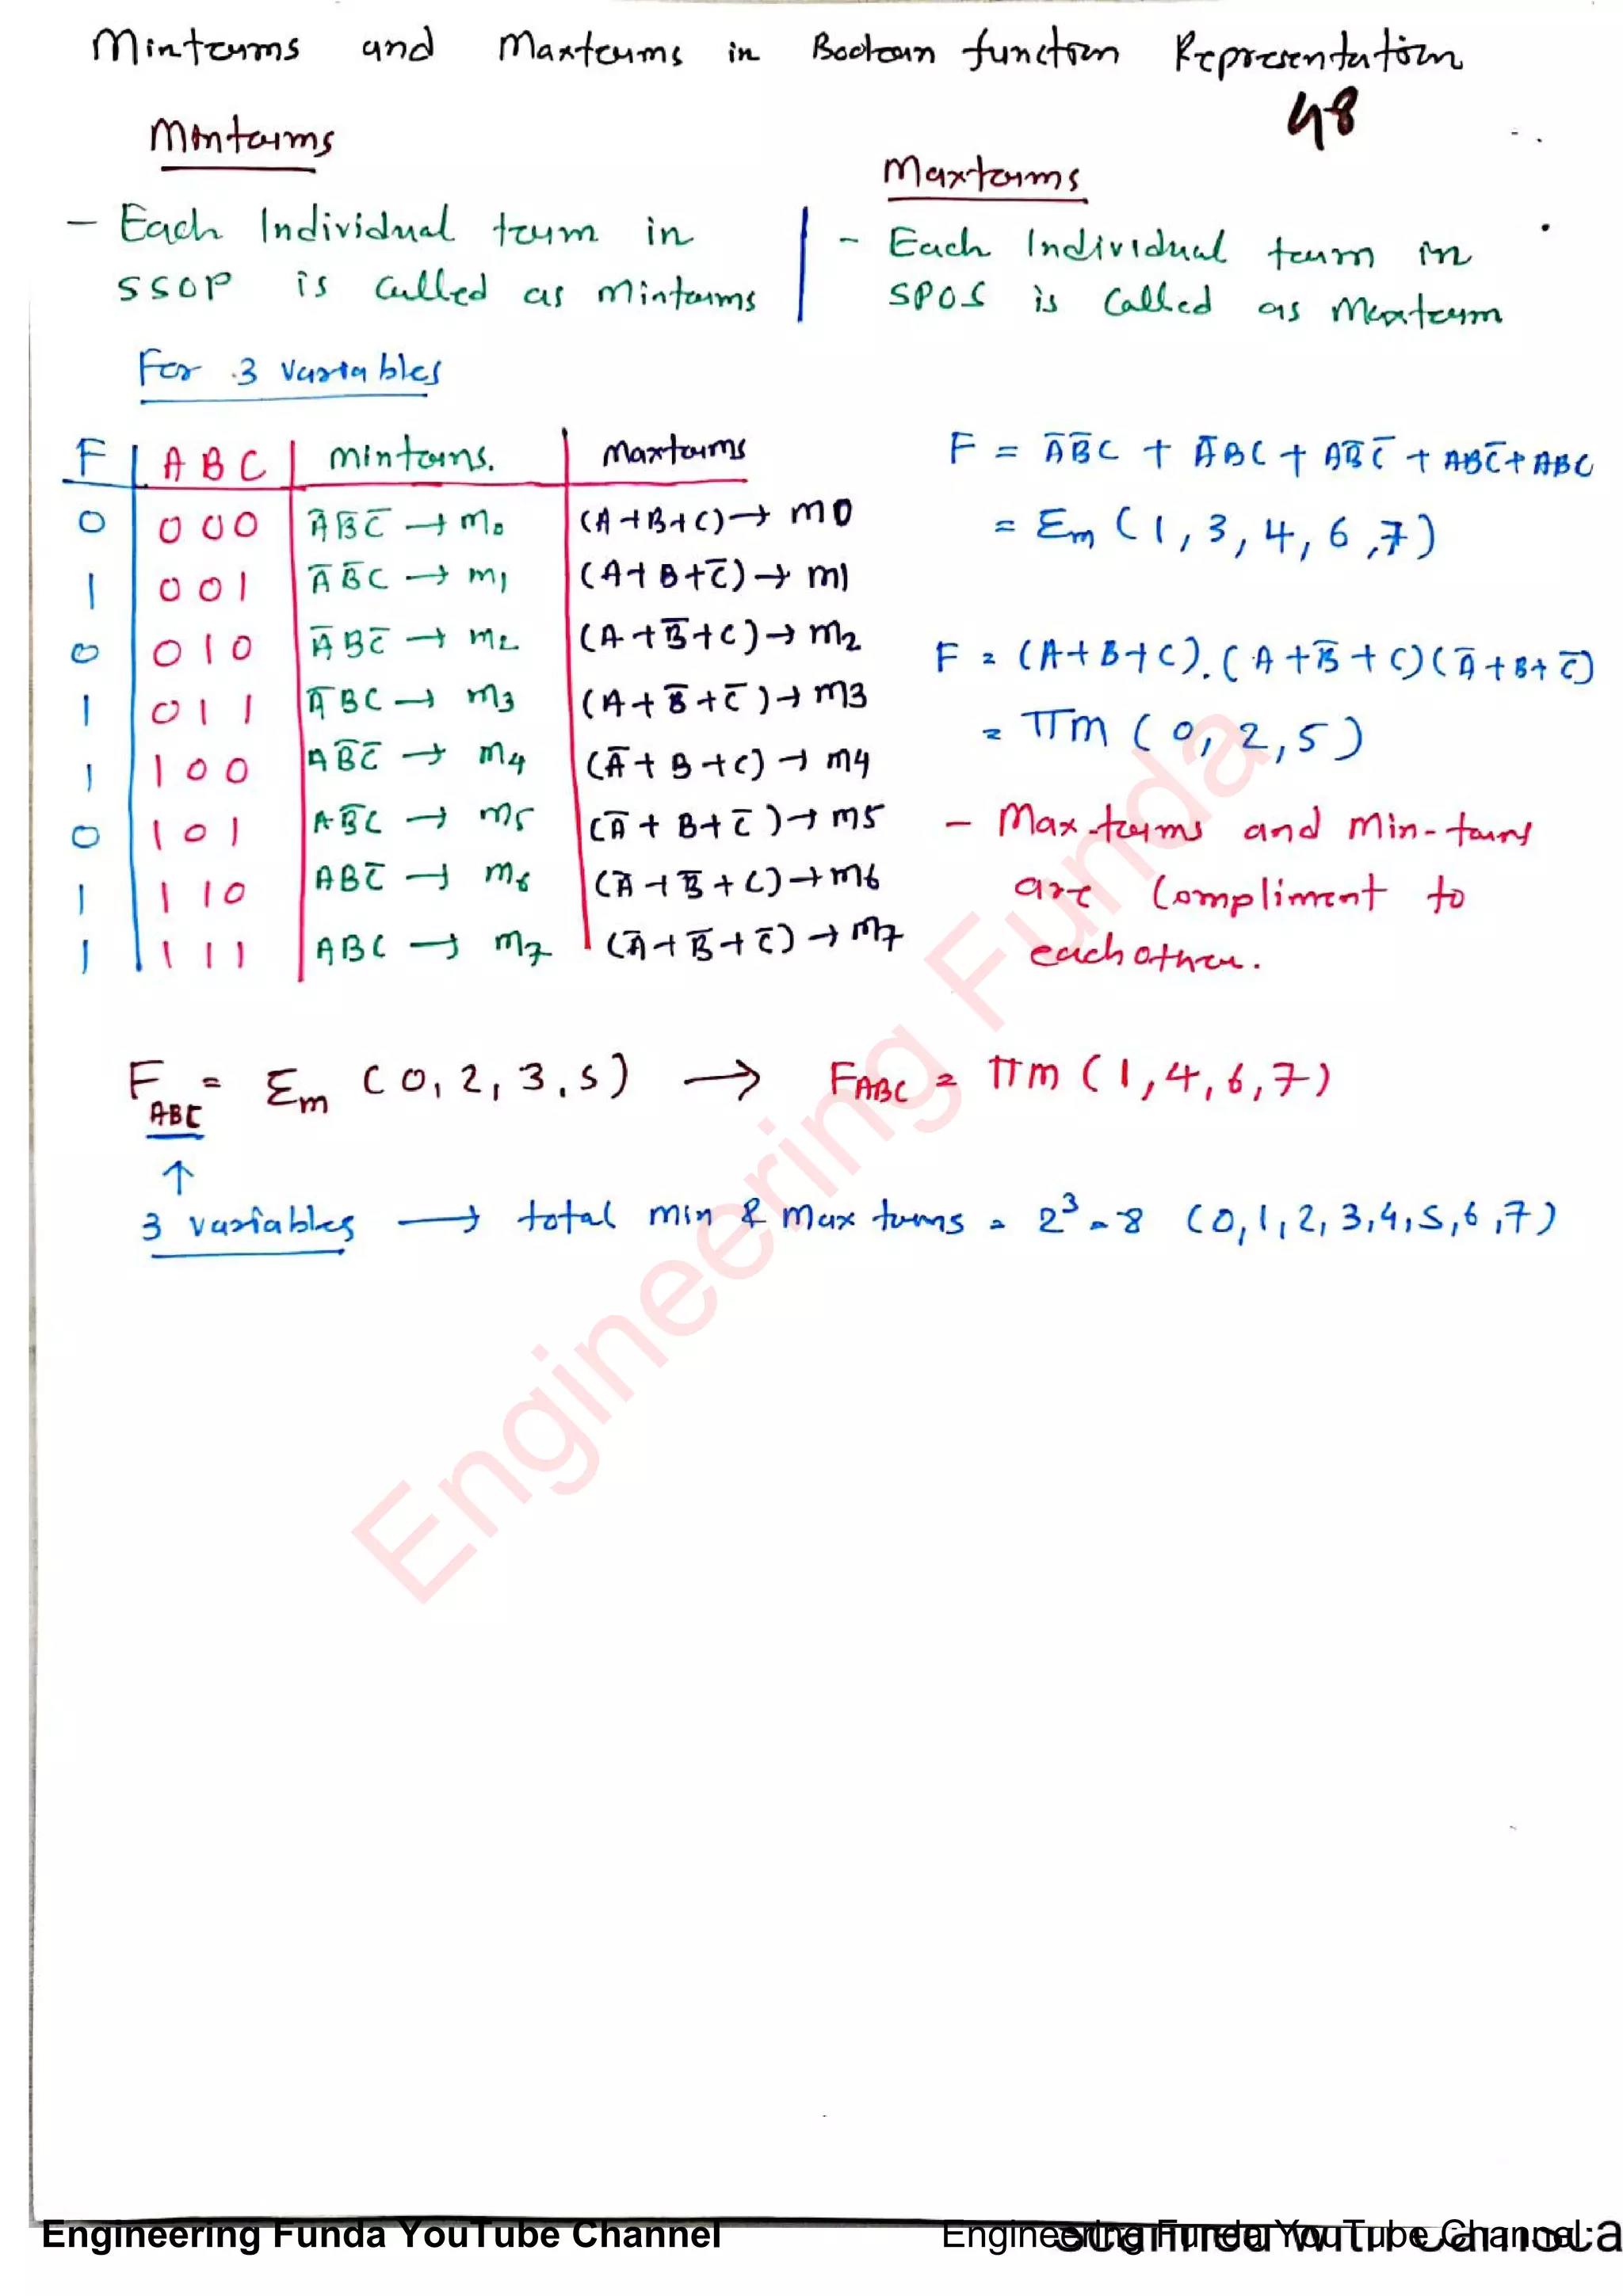 Minterms and Maxterms in Boolean function Representation
48
Minterms
- Each Individual term in
SSOP is called as minterms
Maxterms
- Each Individual term in
SPOS is called as Maxterm
For 3 variables
F | A B C | minterms. | Maxterms
0 | 0 0 0 | A̅B̅C̅ → m0 | (A+B+C) → m0
1 | 0 0 1 | A̅B̅C → m1 | (A+B+C̅) → m1
0 | 0 1 0 | A̅BC̅ → m2 | (A+B̅+C) → m2
1 | 0 1 1 | A̅BC → m3 | (A+B̅+C̅) → m3
1 | 1 0 0 | AB̅C̅ → m4 | (A̅+B+C) → m4
0 | 1 0 1 | AB̅C → m5 | (A̅+B+C̅) → m5
1 | 1 1 0 | ABC̅ → m6 | (A̅+B̅+C) → m6
1 | 1 1 1 | ABC → m7 | (A̅+B̅+C̅) → m7
F = A̅B̅C + A̅BC + AB̅C̅ + ABC̅ + ABC
= Σm (1, 3, 4, 6, 7)
F = (A+B+C).(A+B̅+C)(A̅+B+C̅)
= πm (0, 2, 5)
- Max-terms and min-terms
are Compliment to
each other.
FABC = Σm (0, 2, 3, 5) → FABC = πm (1, 4, 6, 7)
↑
3 variables → total min & max terms = 2³ = 8 (0, 1, 2, 3, 4, 5, 6, 7)
Engineering Funda
Engineering Funda YouTube Channel
Engineering Funda YouTube Channel
Scanned with CamSca